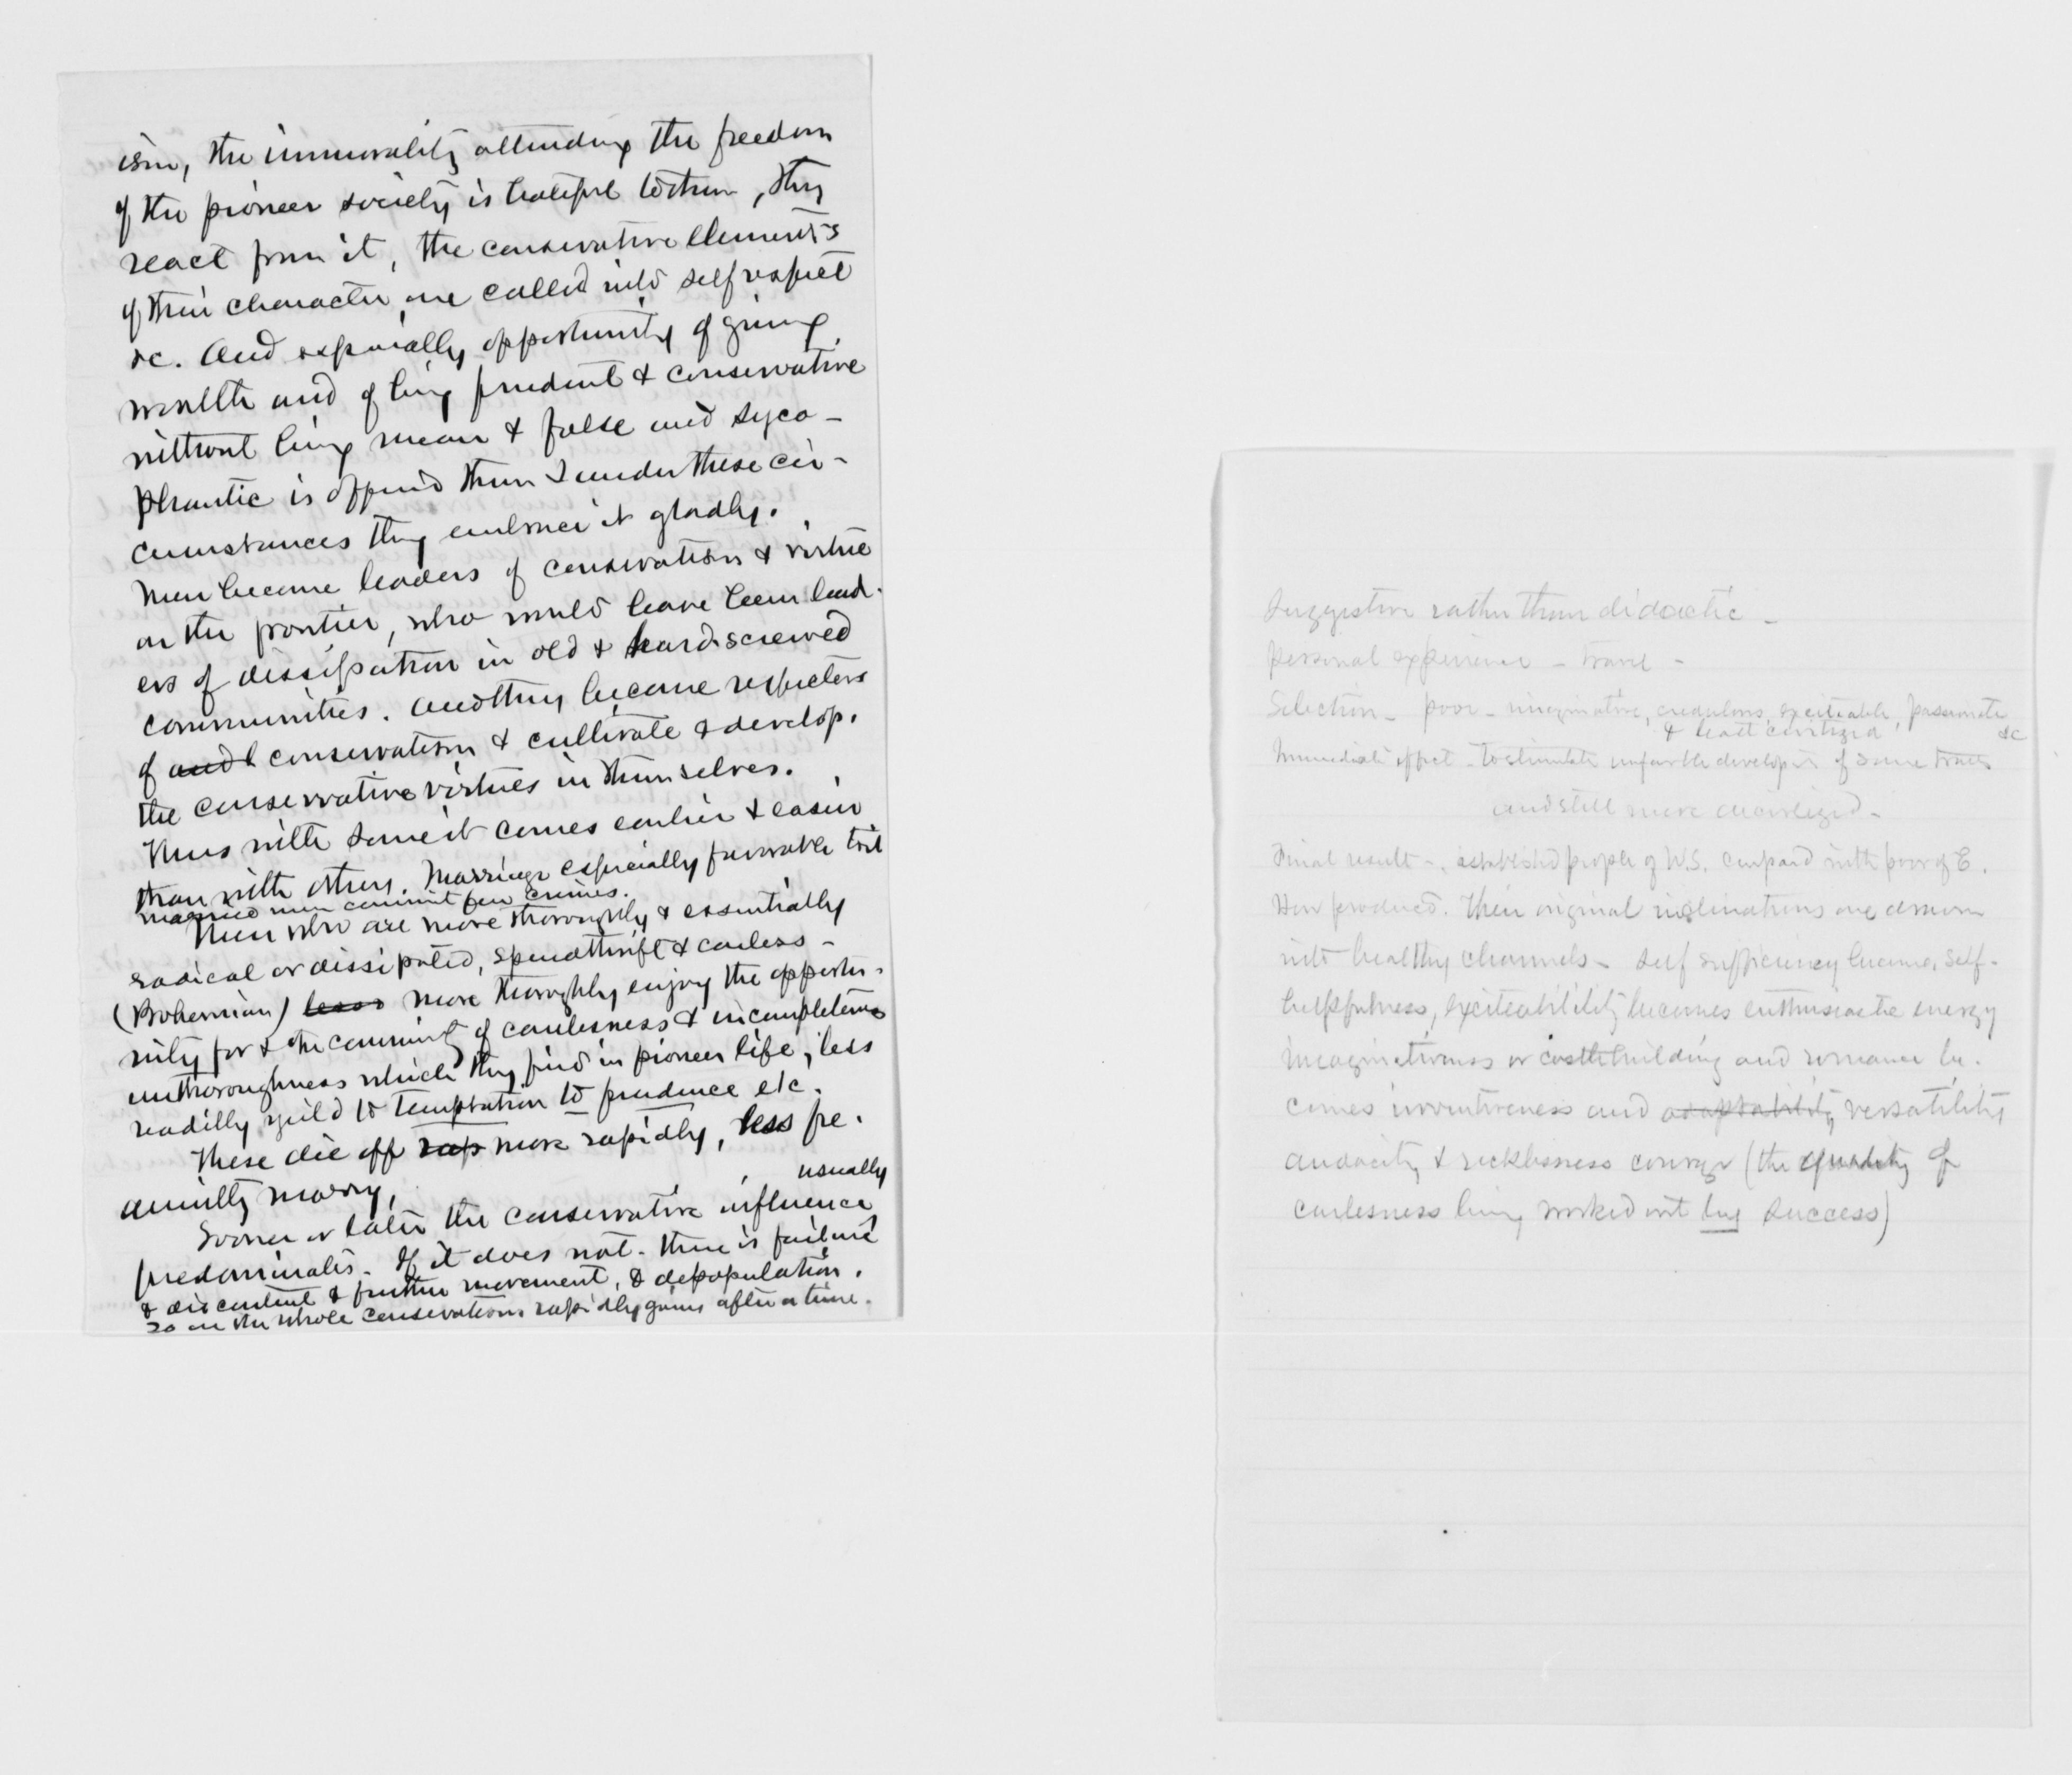 ism, the immorality attending the freedom
of the pioneer society is hateful to them, they
react from it, the conservative elements
of their character are called into self respect
&c. And especially opportunity of giving
wealth and of being prudent & conservative
without being mean & false and syco-
phantic is offered them & under these cir-
cumstances they embrace it gladly.
Men become leaders of conservatism & virtue
on the frontier, who would have been lead-
ers of dissipation in old & hard screwed
communities. And they become respecters
of and conservatism & cultivate & develop.
the conservative virtues in themselves.
Thus with some it comes earlier & easier
than with others. Marriage especially favorable to it
married men commit few crimes.
Men who are more thoroughly & essentially
radical or dissipated, spendthrift & careless -
(Bohemian) less more thoroughly enjoy the opportu-
nity for & the community of carelessness & incompleteness
unthoroughness which they find in pioneer life, less
readily yield to temptation to prudence etc.
These die off rap more rapidly, less fre-
quently marry,
usually
Sooner or later the conservative influence
predominates. If it does not - there is failure
& discontent & further movement, & depopulation.
so on the whole conservatism rapidly gains after a time.
Suggestive rather than didactic -
personal experience - travel -
Selection - poor - imaginative, credulous, exciteable, passionate
& least civilized &c
Immediate effect - to stimulate unfavorable develop't of some traits
and still more decivilized -
Final result - established people of W.S. compared with poor of E.
How produced. Their original inclinations are drawn
into healthy channels - self sufficiency becomes, self-
helpfulness, exciteability becomes enthusiastic energy
imaginativeness or castle building and romance be-
comes inventiveness and adaptability versatility
audacity & recklessness courage (the quality of
carelessness being worked out by success)